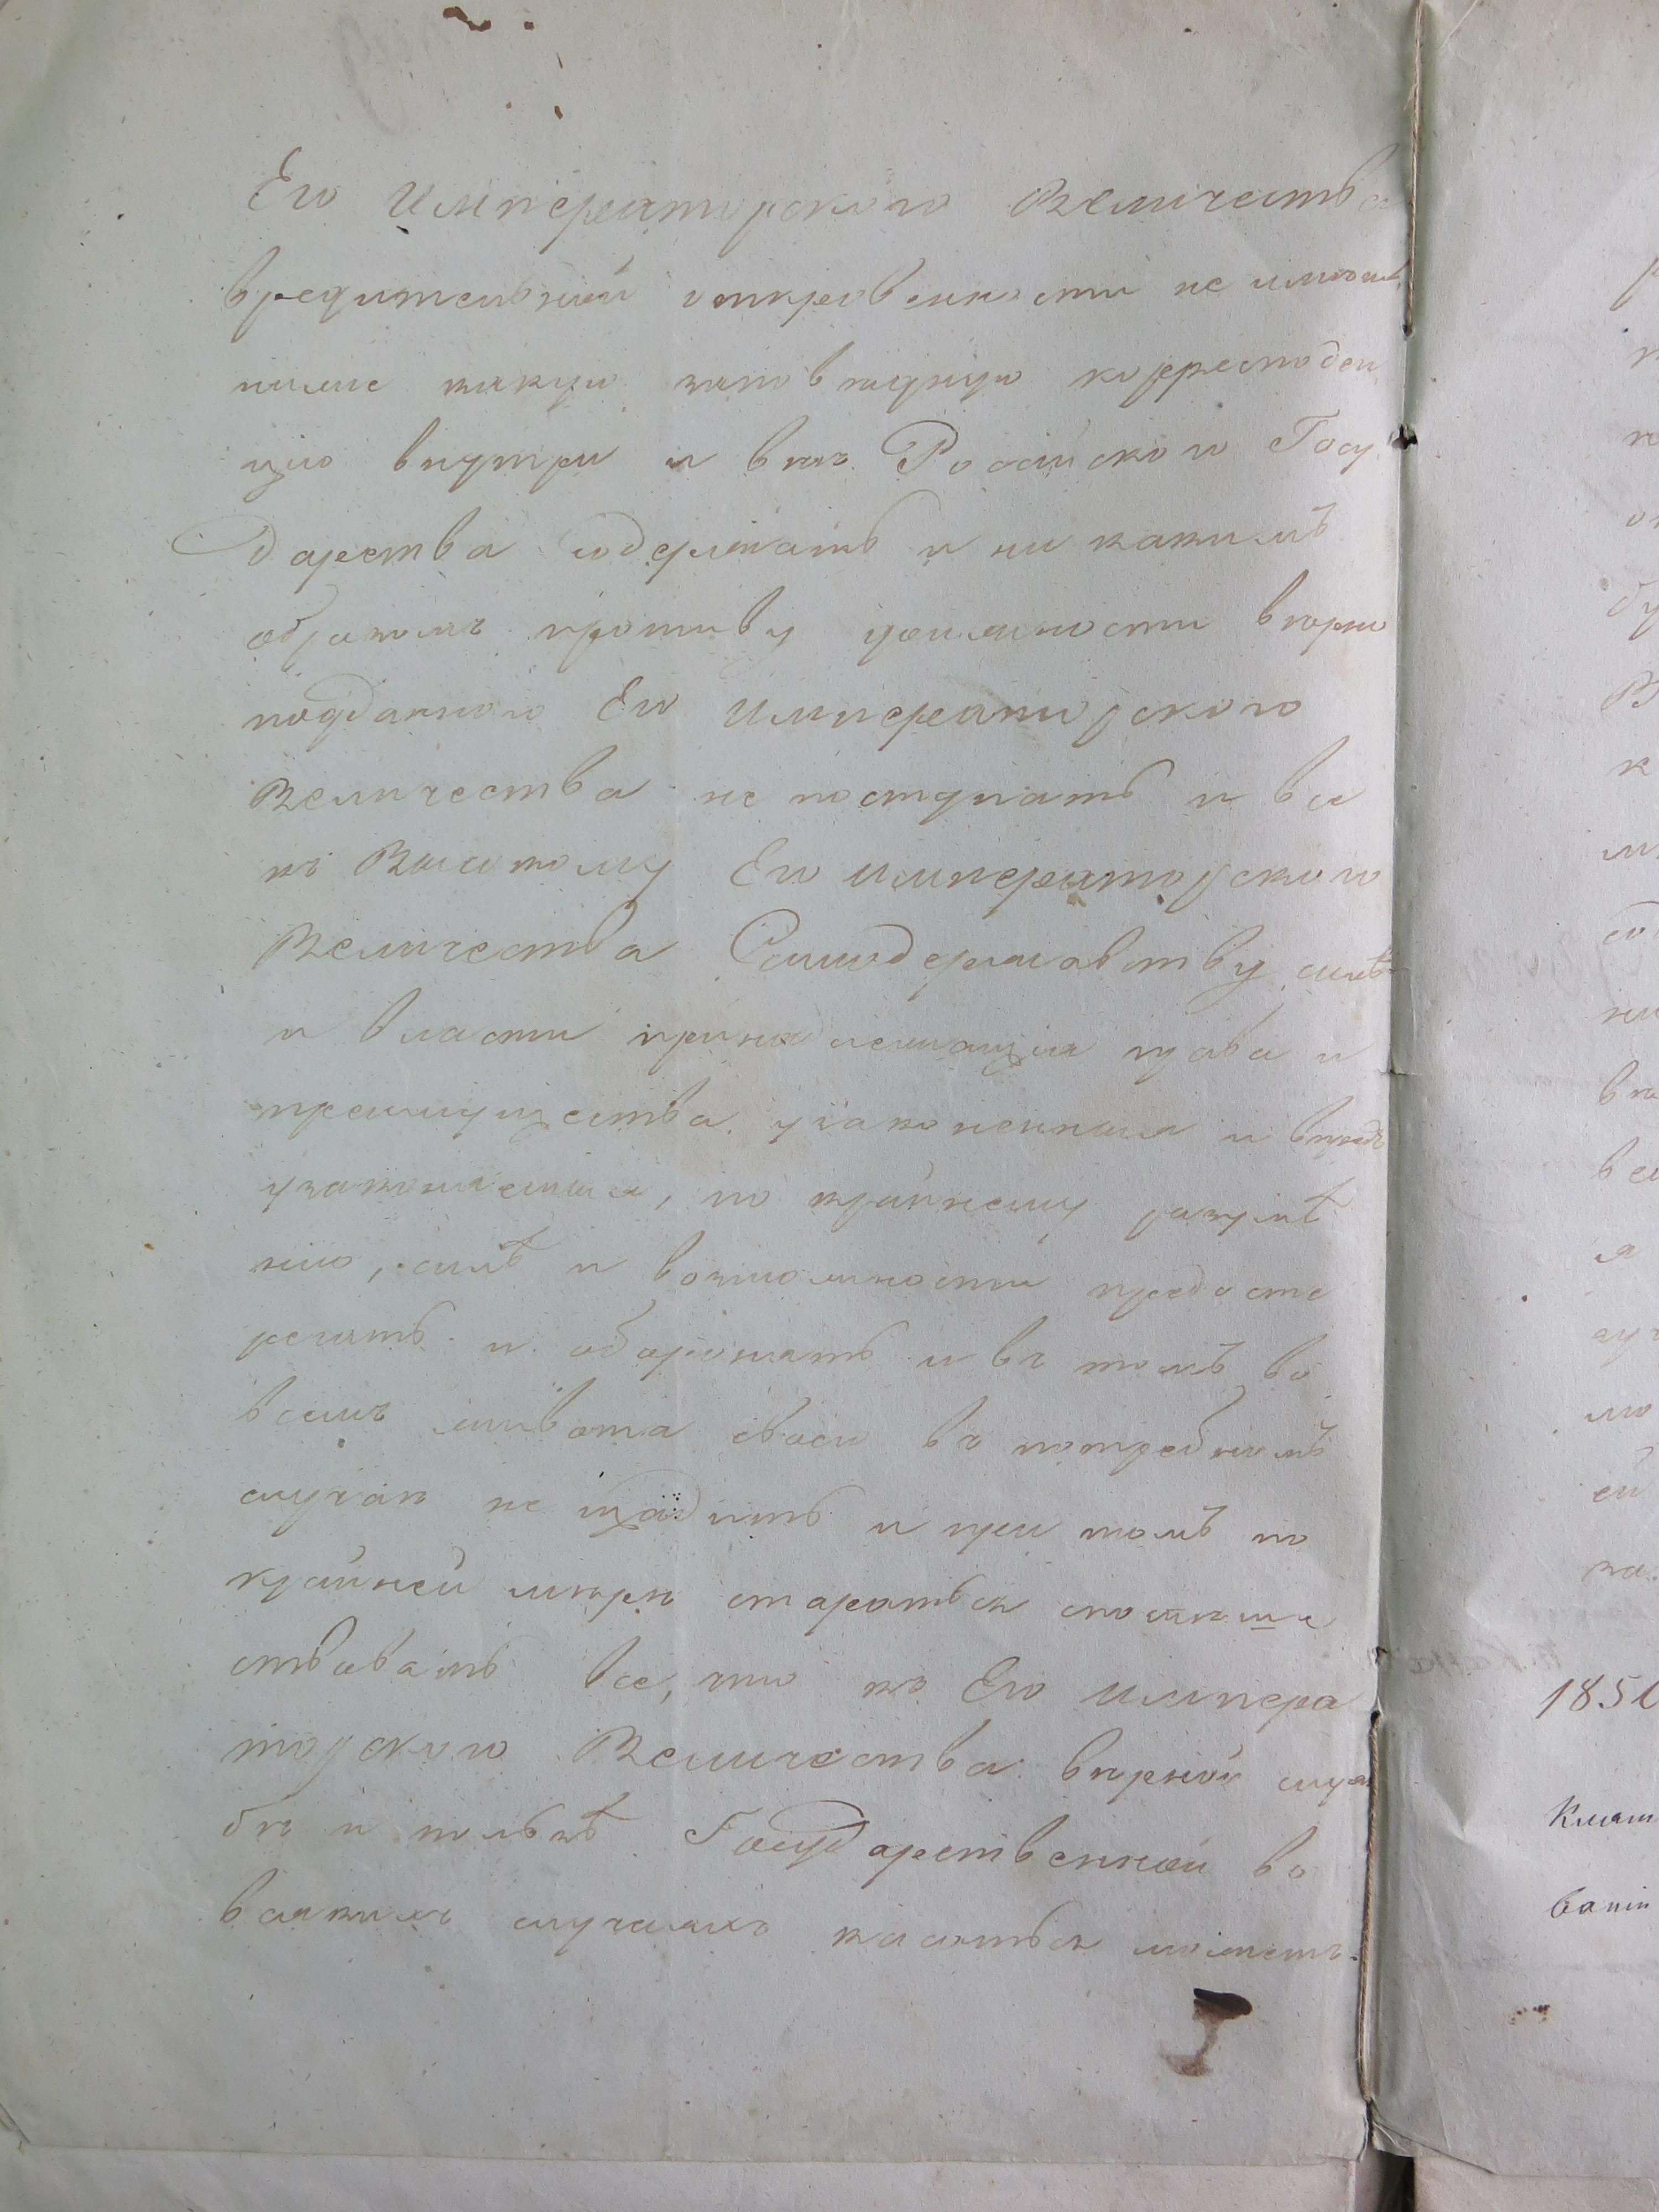 Его Императорскаго Величества
вредительной откровенности не имѣть
ниже какую заповѣдную корресподен
цію внутри и внѣ Россійскаго Госу
дарства содержать и ни какимъ
образомъ противу должности вѣрно
подданного Его Императорского
Величества не поступать и все
къ Высокому Его Императорскаго
Величества Самодержавству силѣ
и власти принадлежащія права и
преимущества узаконенныя и впредь
узаконяемыя, по крайнему разумѣ
нію, силѣ и возможности предосте
регать и оборонять и въ томъ во
всемъ живота своего въ потребномъ
случаѣ не щадить и при томъ по
крайней мѣрѣ стараться споспѣше
ствовать все, что къ Его Импера
торскаго Величества вѣрной служ
бѣ и пользѣ Государственной во
всякихъ случаяхъ касаться можетъ.